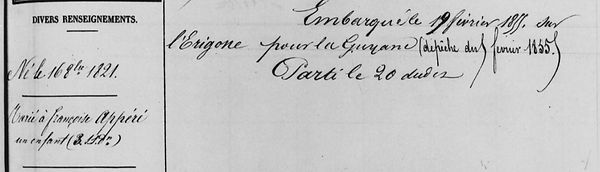 DIVERS RENSEIGNEMENTS.
Né le 16 8bre 1821.
Marié à françoise Appéré
un enfant (
Embarqué le 19 février 1855. sur
l'Erigone pour la Guyane (dépêche du 7 fevrier 1855.)
Parti le 20 dudit